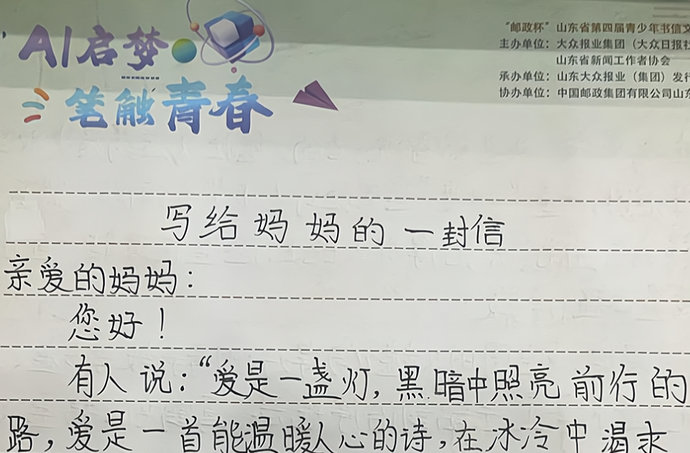 AI启梦
笔触青春
"邮政杯"山东省第四届青少年书信文
主办单位：大众报业集团（大众日报社
山东省新闻工作者协会
承办单位：山东大众报业（集团）发行
协办单位：中国邮政集团有限公司山东
写给妈妈的一封信
亲爱的妈妈：
您好！
有人说：“爱是一盏灯，黑暗中照亮前行的
路，爱是一首能温暖人心的诗，在冰冷中渴求